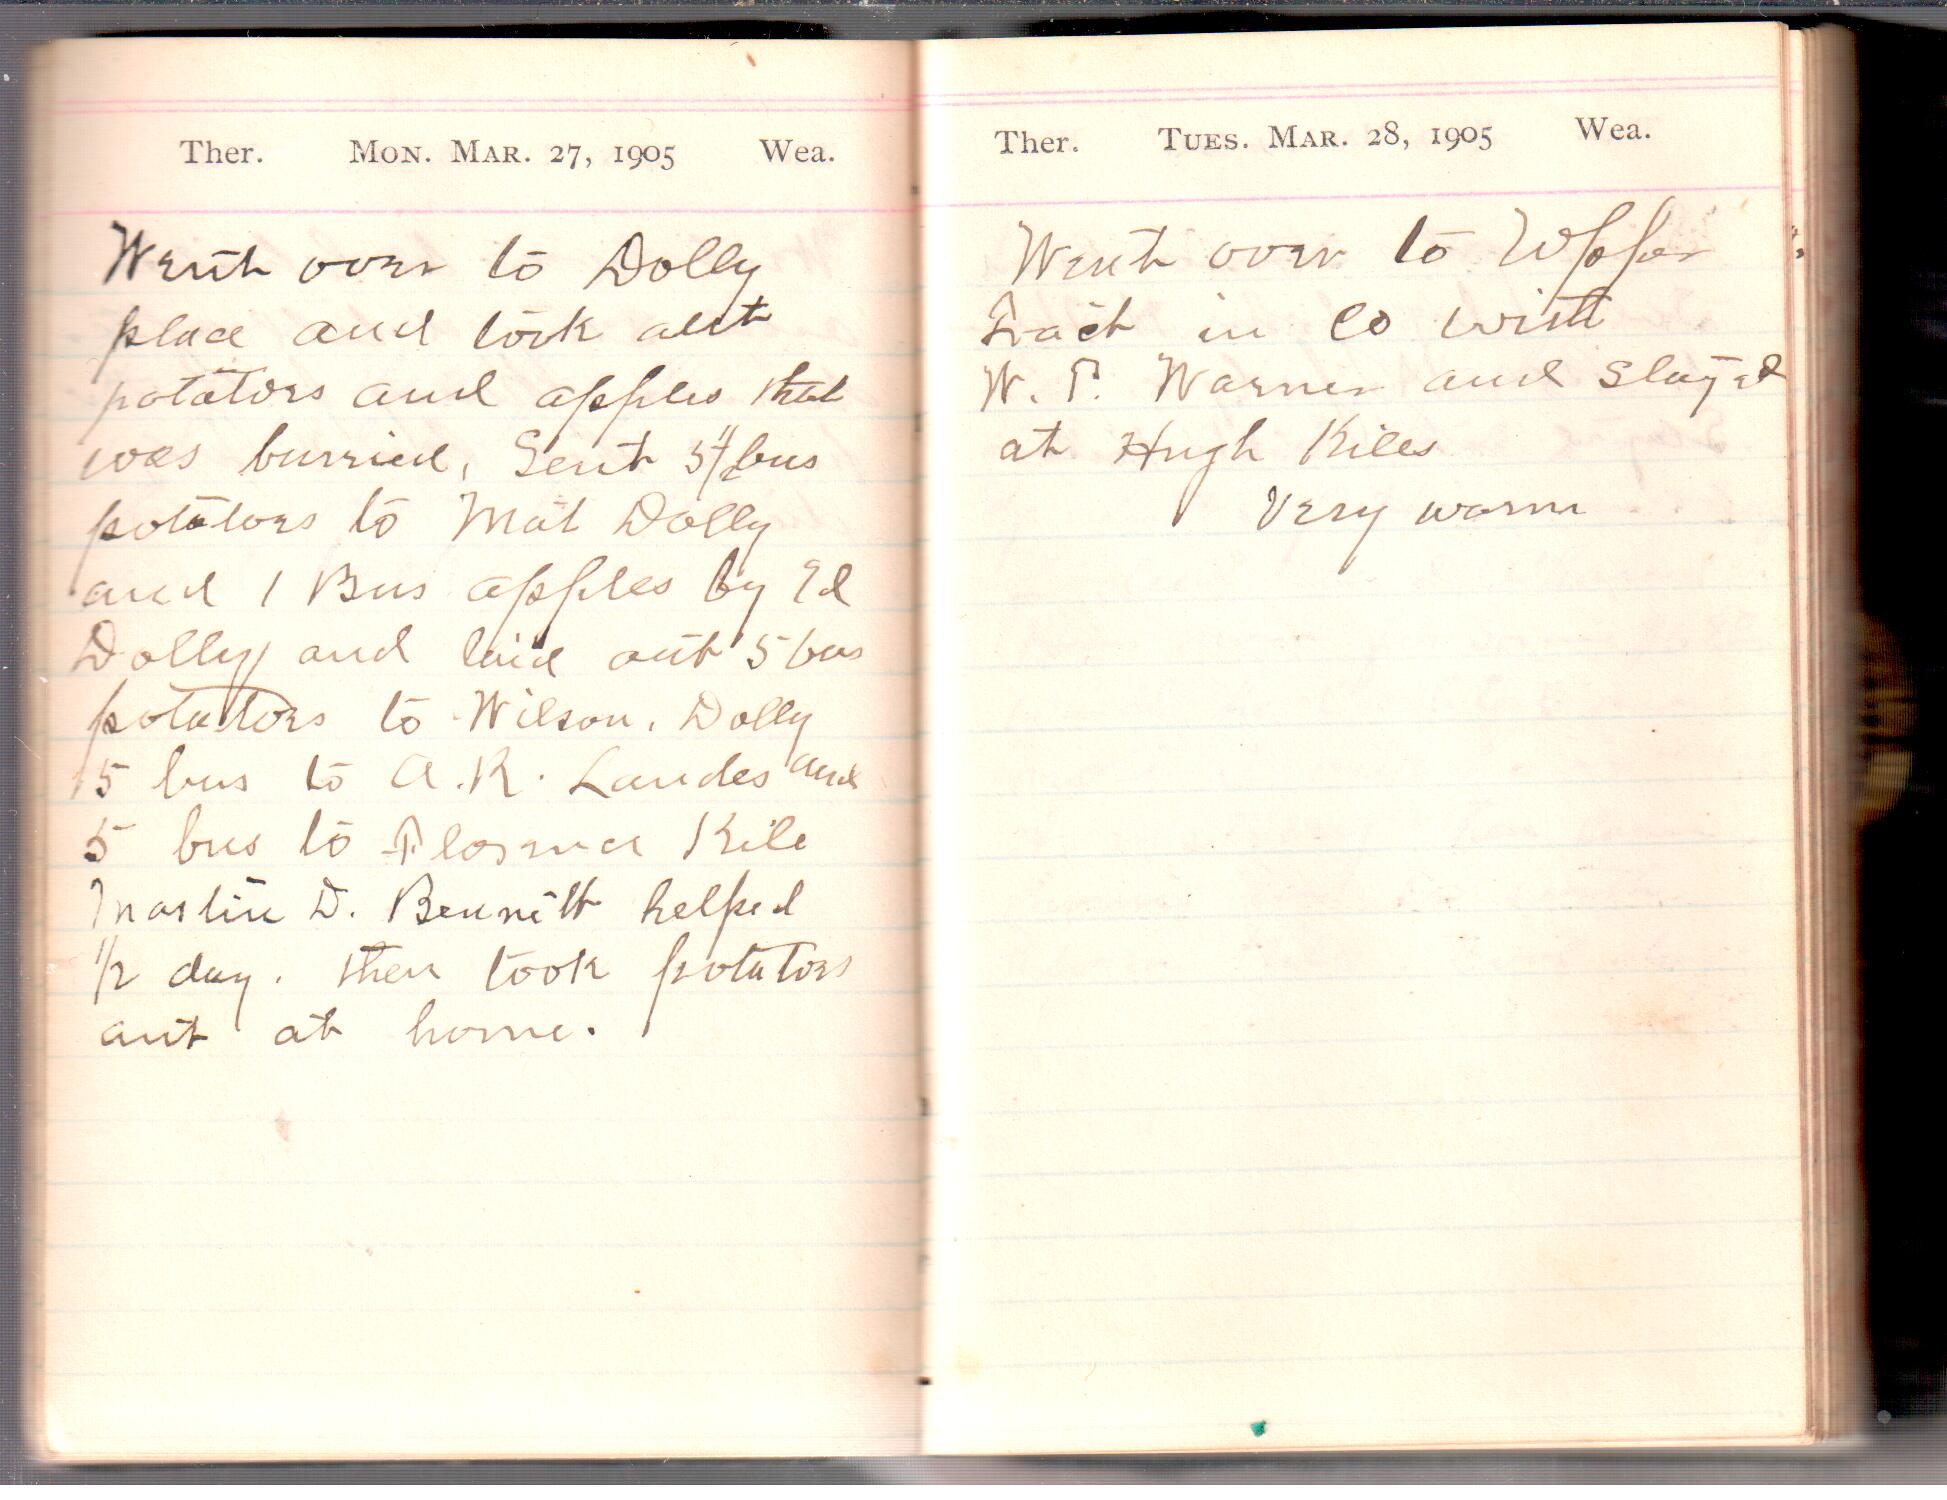 Ther. Mon. Mar. 27, 1905 Wea.
Went over to Dolly
place and took out
potatoes and apples that
was burried, Sent 5 1/2 bus
potatoes to Mat Dolly
and 1 Bus apples by Ed
Dolly and laid out 5 bus
potatoes to Wilson. Dolly
5 bus to A. K. Landes and
5 bus to Florence Kile
Martin D. Bennett helped
1/2 day. then took potatoes
out at home.
Ther. Tues. Mar. 28, 1905 Wea.
Went over to Upper
Tract in Co with
W. P. Warner and Stayed
at Hugh Kiles
Very warm